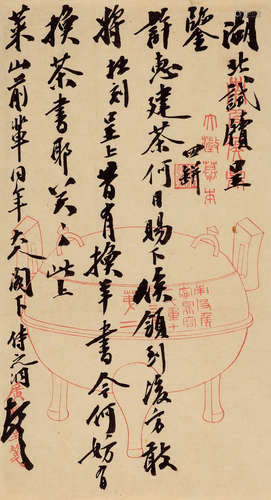 湖北試牘呈
鑒
四餅
許惠建茶何日賜下俟領到後方敢
將杜刻呈上昔有換羊書今何妨有
換茶書耶笑笑此上
萊山前輩同年大人閣下侍之洞